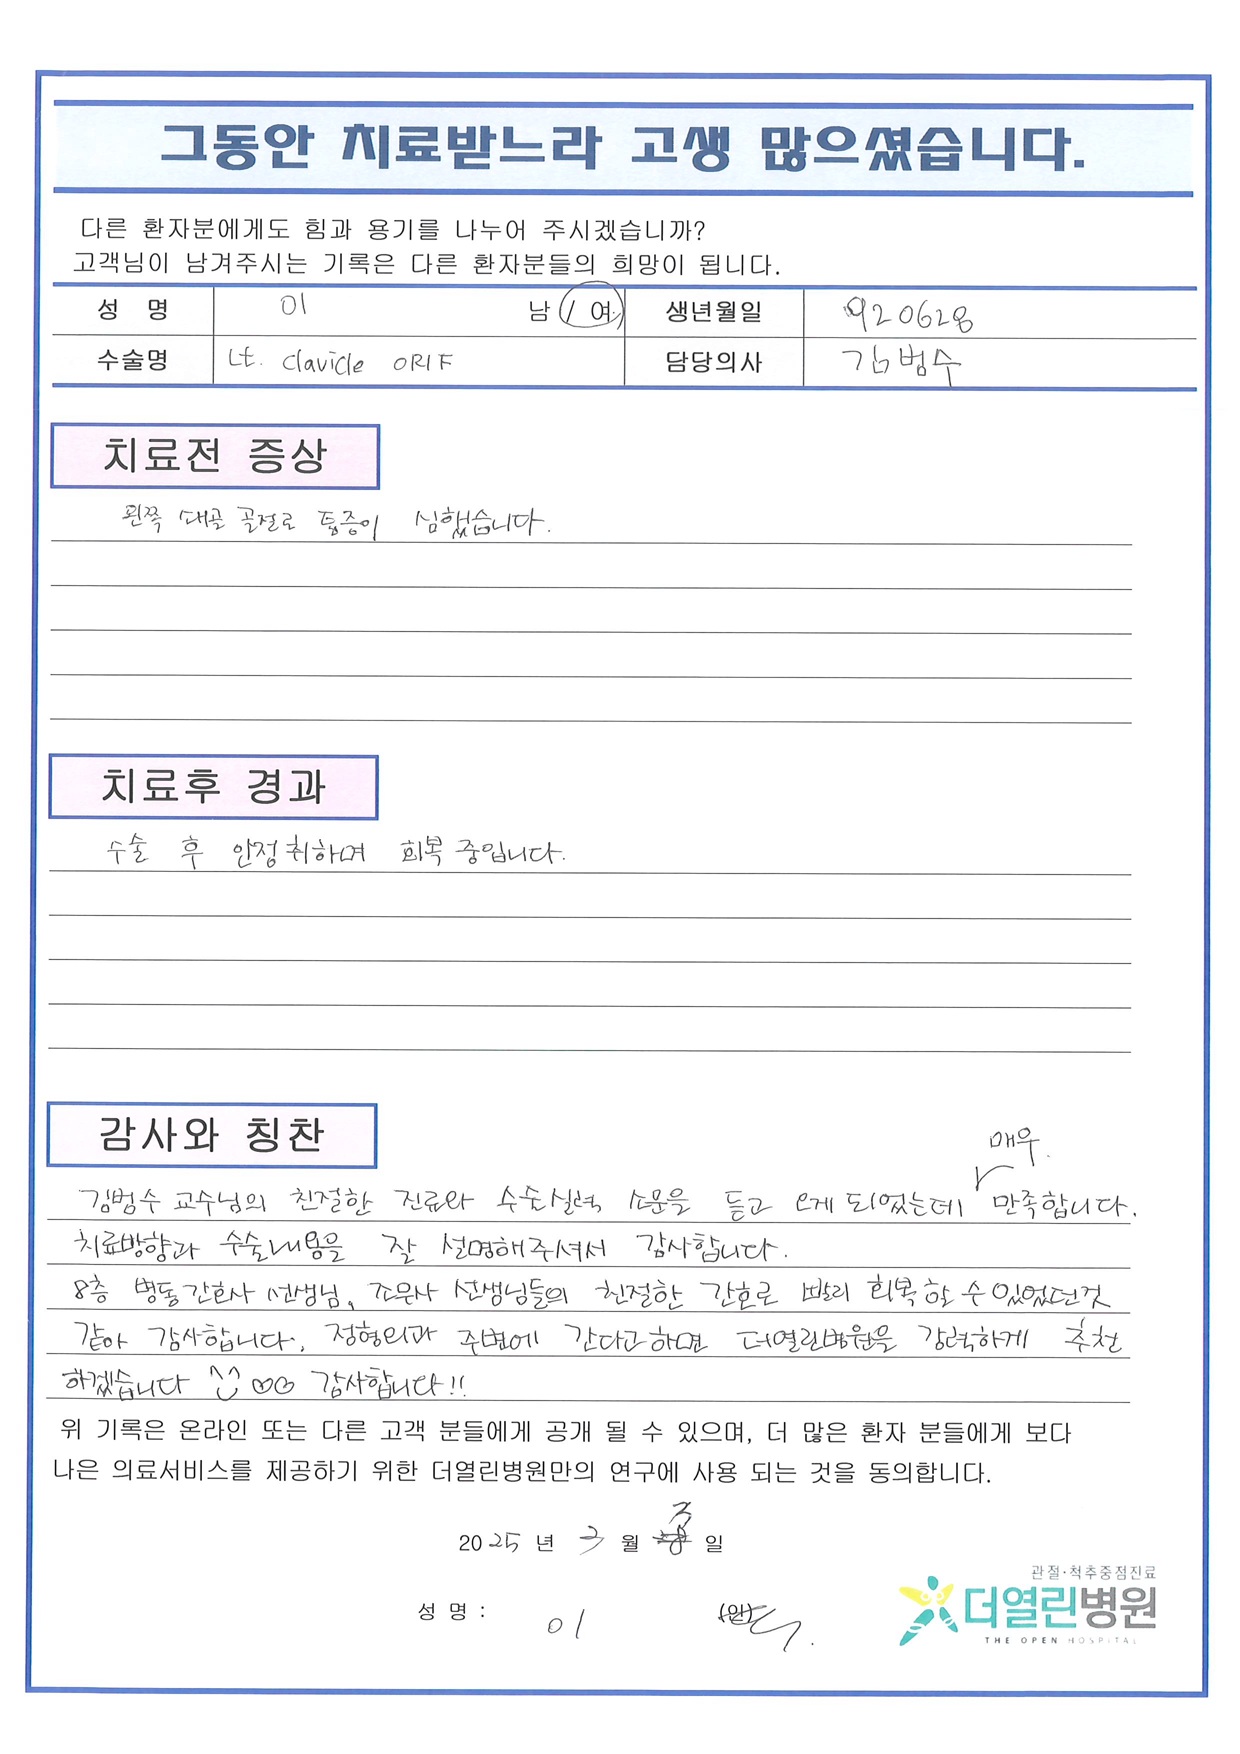 그동안 치료받느라 고생 많으셨습니다.
다른 환자분에게도 힘과 용기를 나누어 주시겠습니까?
고객님이 남겨주시는 기록은 다른 환자분들의 희망이 됩니다.
성 명 이 남 / 여 생년월일 920628
수술명 Lt. clavicle ORIF 담당의사 김범수
치료전 증상
왼쪽 쇄골 골절로 통증이 심했습니다.
치료후 경과
수술 후 안정취하며 회복 중입니다.
감사와 칭찬
매우
김범수 교수님의 친절한 진료와 수술실력 소문을 듣고 오게 되었는데 만족합니다.
치료방향과 수술내용을 잘 설명해주셔서 감사합니다.
8층 병동간호사 선생님, 조무사 선생님들의 친절한 간호로 빨리 회복할 수 있었던것
같아 감사합니다. 정형외과 주변에 간다고하면 더열린병원을 강력하게 추천
하겠습니다 ^^ 감사합니다!!
위 기록은 온라인 또는 다른 고객 분들에게 공개 될 수 있으며, 더 많은 환자 분들에게 보다
나은 의료서비스를 제공하기 위한 더열린병원만의 연구에 사용 되는 것을 동의합니다.
2025 년 3 월 3 일
성 명 : 이 (인)
관절·척추중점진료
더열린병원
THE OPEN HOSPITAL